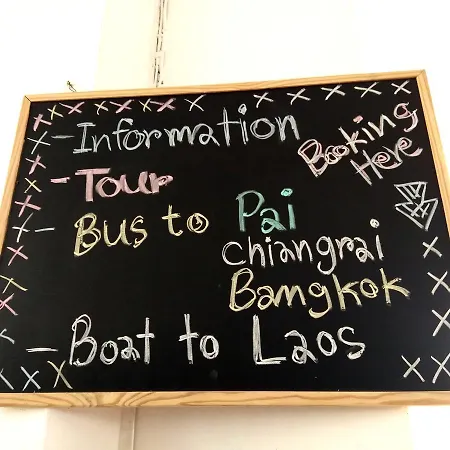 - Information
Booking Here
- Tour
- Bus to Pai
Chiangrai
Bangkok
- Boat to Laos